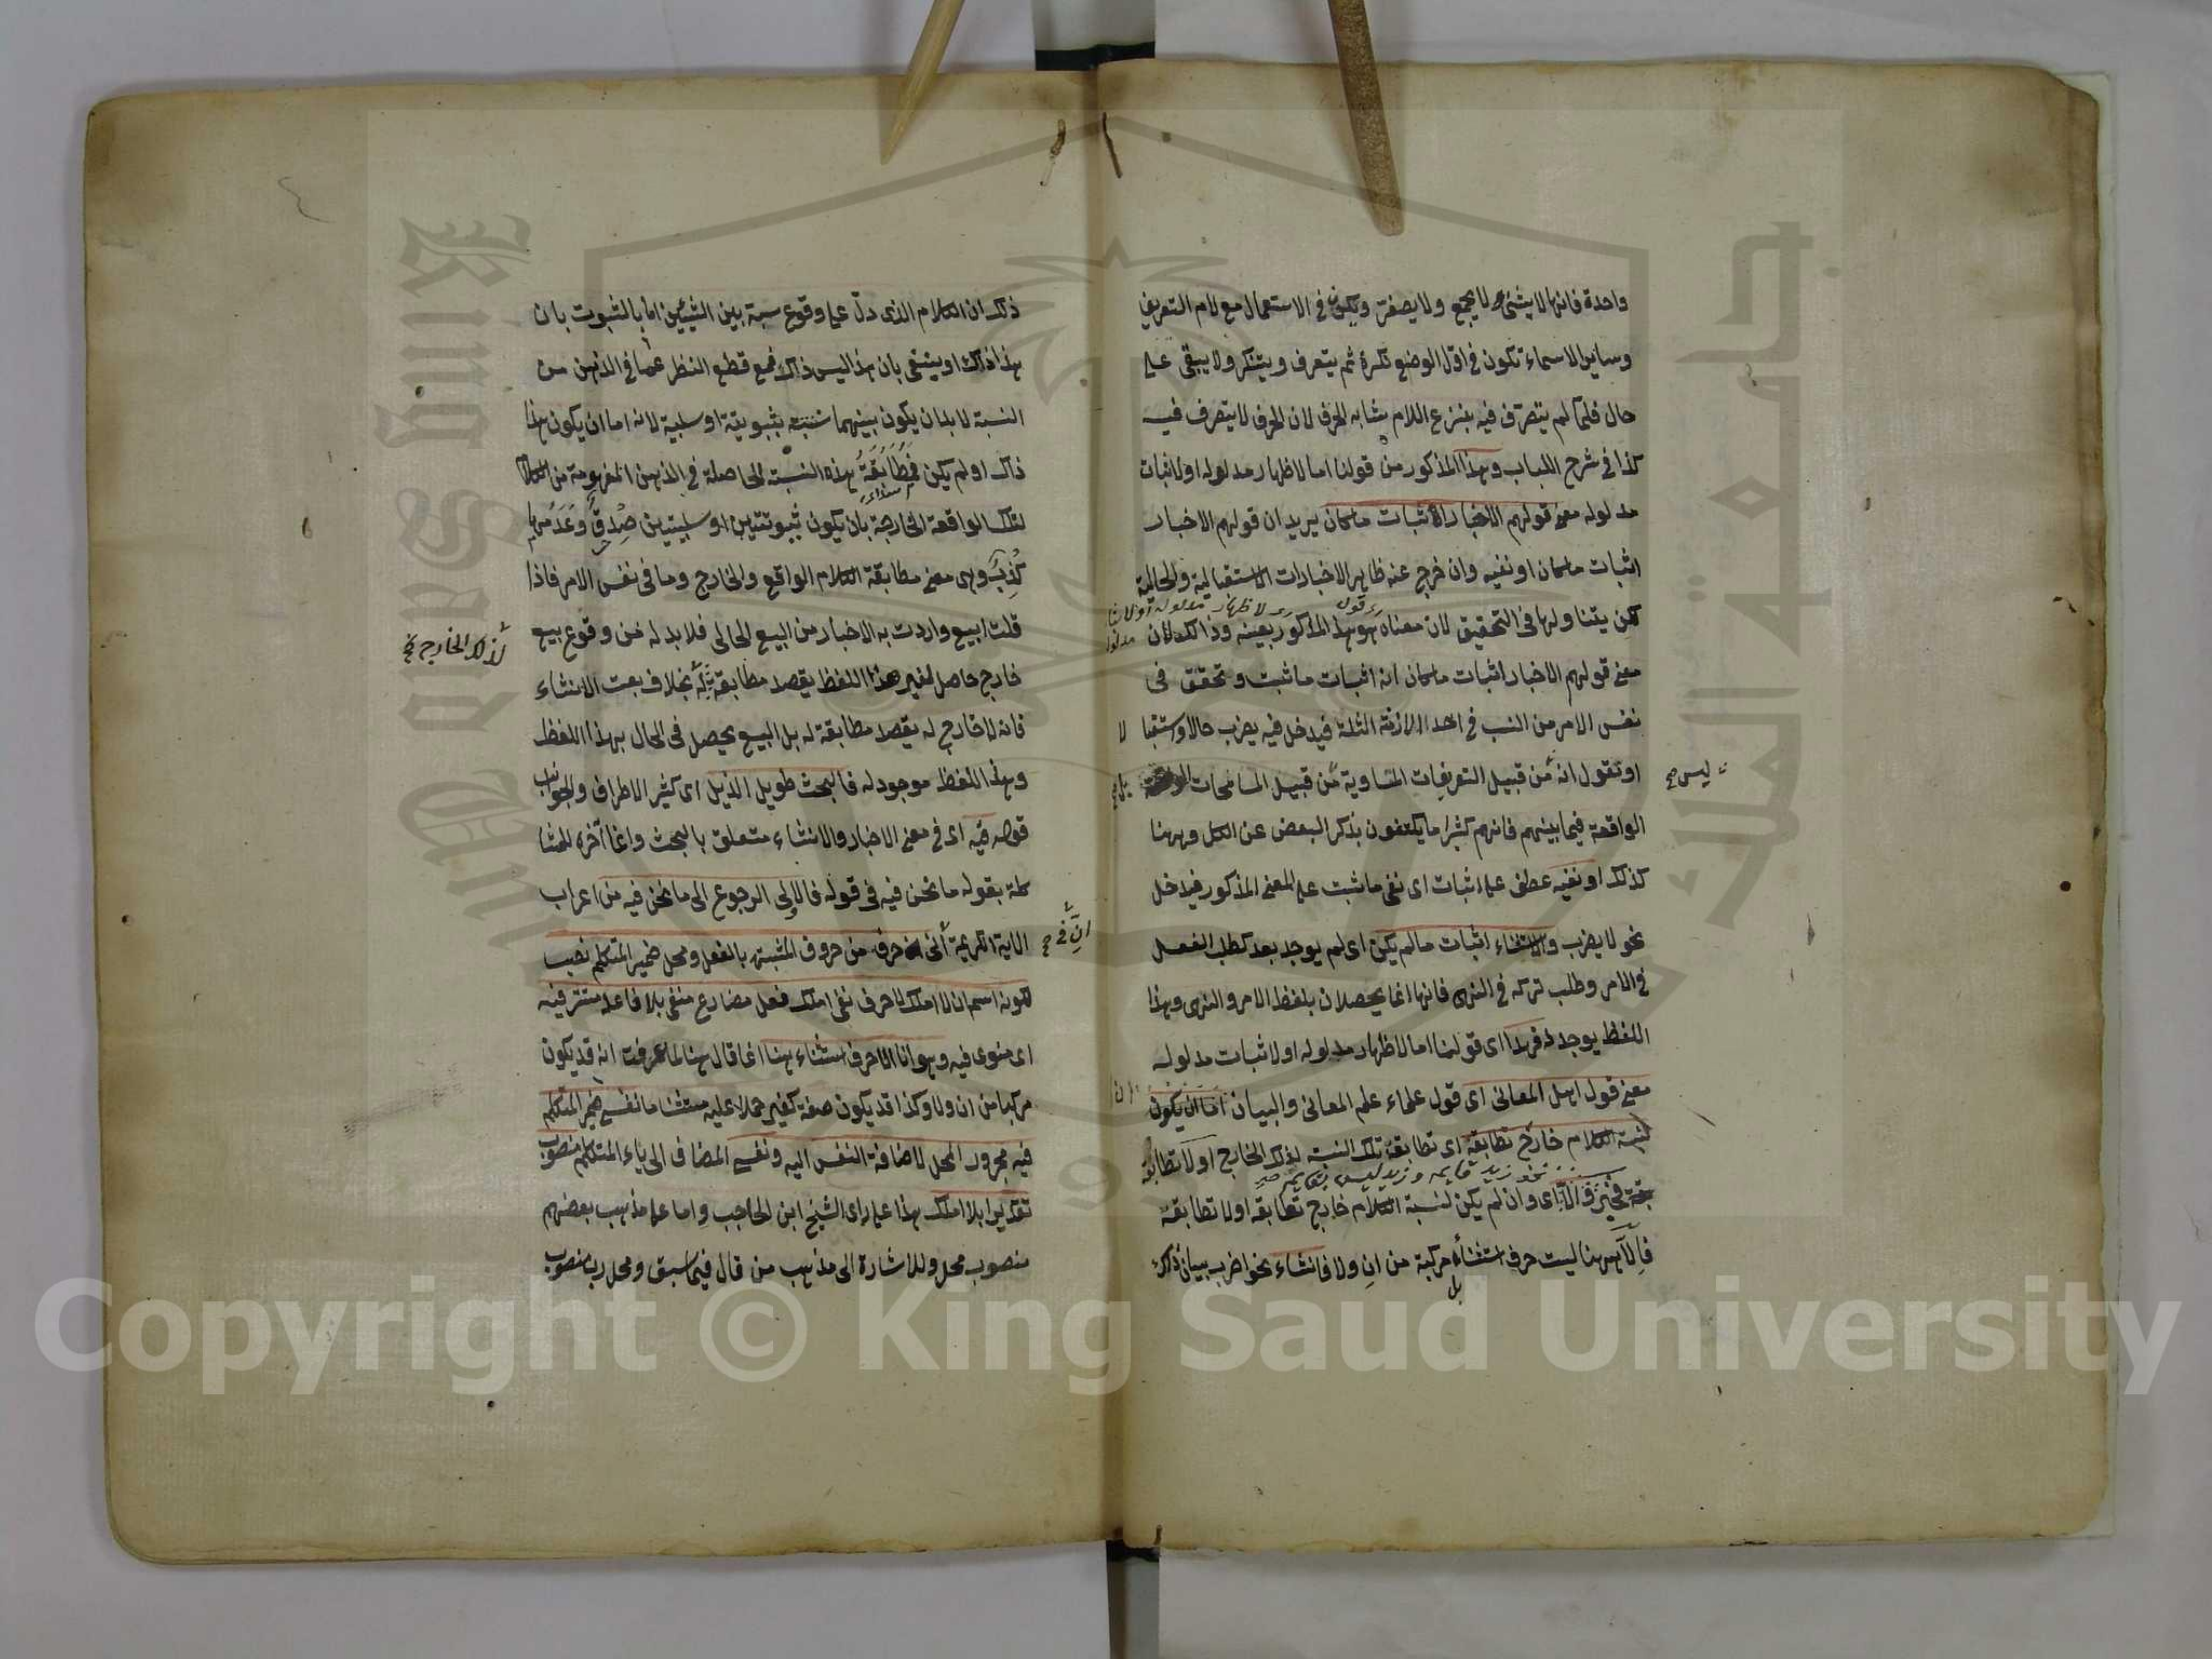 واحدة فانها لا يثنى ولا يجمع ولا يصغر ويكون في الاستعمال مع لام التعريف
وساير الاسماء تكون في اول الوضع نكرة ثم يتعرف ويتنكر ولا يبقى على
حال فلما لم يتصرف فيه بنزع اللام شابه الحرف لان الحرف لا يتصرف فيه
كذا في شرح اللباب وهذا المذكور من قولنا اما لاظهار مدلوله او لاثبات
مدلوله معنى قولهم الاخبار لاثبات ماكان يريد ان قولهم الاخبار
اثبات ماكان او نفيه وان خرج عنه ظاهر الاخبارات الاستقبالية والحالية
لكن يتناولها في التحقيق لان معناه هو هذا المذكور بعينه وذلك لان
قوله لاظهار مدلوله او لاثبات مدلوله
معنى قولهم الاخبار اثبات ماكان انه اثبات ما ثبت وتحقق في
نفس الامر من النسب في احد الازمنة الثلثة فيدخل فيه يضرب حالا واستقبالا
او تقول انه من قبيل التعريفات المتساوية من قبيل المسامحات
ليس صح
بل صح
الواقعة فيما بينهم فانهم كثيرا ما يكتفون بذكر البعض عن الكل وههنا
كذلك او نفيه عطف على اثبات اى نفى ما ثبت على المعنى المذكور فيدخل
نحو لا يضرب والانشاء اثبات مالم يكن اى لم يوجد بعد كطلب الفعل
في الامر وطلب تركه في النهى فانها انما يحصلان بلفظ الامر والنهى وبهذا
اللفظ يوجد له فهذا اى قولنا اما لاظهار مدلوله او لاثبات مدلوله
معنى قول اهل المعانى اى قول علماء علم المعانى والبيان اما ان يكون
لنسبة الكلام خارج تطابقه اى تطابقه تلك النسبة لذلك الخارج او لا تطابقه
نحو زيد قايم وزيد ليس بقايم
فخبر والا اى وان لم يكن لنسبة الكلام خارج تطابقه او لا تطابقه
فالا ههنا ليست حرف استثناء بل مركبة من ان ولا فانشاء نحو اضرب بيان ذلك
ذلك ان الكلام الذى دل على وقوع نسبة بين الشيئين اما بالثبوت بان
هذا ذاك او ينتفى بان هذا ليس ذاك فمع قطع النظر عما في الذهن من
النسبة لا بد ان يكون بينهما نسبة ثبوتية او سلبية لانه اما ان يكون هذا
ذاك او لم يكن فمطابقة هذه النسبة الحاصلة في الذهن المفهومة من الكلام
لتلك الواقعة الخارجة بان يكون ثبوتتين او سلبيتين صدق وعدمها
كذب وهى معنى مطابقة الكلام الواقع والخارج وما في نفس الامر فاذا
قلت ابيع واردت به الاخبار من البيع الحالى فلا بد له من وقوع بيع
لذلك الخارج
خارج حاصل لغير هذا اللفظ يقصد مطابقته له بخلاف بعت الانشاء
فانه لا خارج له يقصد مطابقة له بل البيع يحصل في الحال بهذا اللفظ
وهذا اللفظ موجود له فالبحث طويل الذيل اى كثير الاطراف والجوانب
قوله فيه اى في معنى الاخبار والانشاء متعلق بالبحث وانما آخره للمشا
كلة بقوله ما نحن فيه في قوله فالاولى الرجوع الى ما نحن فيه من اعراب
الاية الكريمة انى ان حرف من حروف المشبهة بالفعل ومحل ضمير المتكلم نصب
ان في صح
لكونه اسم ان لا املك لا حرف نفى املك فعل مضارع منفى بلا فاعله مستتر فيه
اى منوى فيه وهو انا الا حرف استثناء هنا انما قال هنا لما عرفت انه قد يكون
مركبا من ان ولا وكذا قد يكون صفة كغير حملا عليه مستثنا ما نفسى ضمير المتكلم
فيه مجرور المحل لاضافة النفس اليه ونفسى المضاف الى ياء المتكلم منصوب
تقديرا بلا املك هذا على راى الشيخ ابن الحاجب واما على مذهب بعضهم
منصوب محلا وللاشارة الى مذهب من قال فيما سبق ومحل رب منصوب
جامعة الملك سعود
King Saud University
Copyright © King Saud University